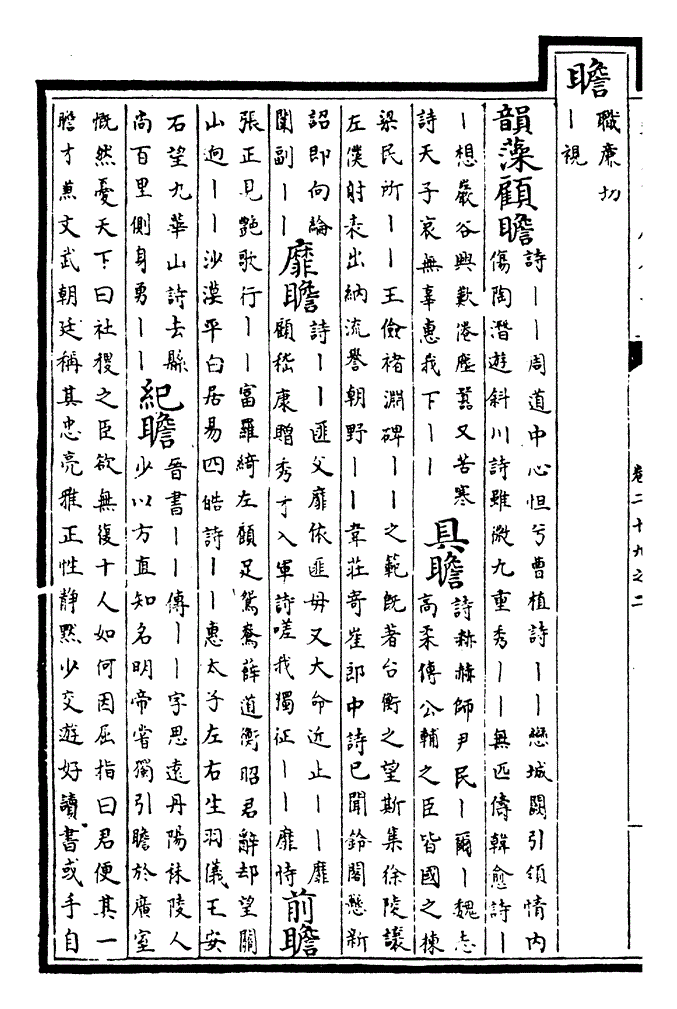 瞻
職廉切
丨視
韻藻
顧瞻
詩丨丨周道中心怛兮曹植詩丨丨戀城闕引領情內
傷陶潛遊斜川詩雖微九重秀丨丨無匹儔韓愈詩丨
丨想巖谷興歎倦塵囂又苦寒
詩天子哀無辜惠我下丨丨
具瞻
詩赫赫師尹民丨爾丨魏志
高柔傳公輔之臣皆國之棟
梁民所丨丨王儉褚淵碑丨丨之範既著台衡之望斯集徐陵讓
左僕射表出納流譽朝野丨丨韋莊寄崔郎中詩已聞鈴閣懸新
詔即向論
闈副丨丨
靡瞻
詩丨丨匪父靡依匪母又大命近止丨丨靡
顧嵇康贈秀才入軍詩嗟我獨征丨丨靡恃
前瞻
張正見艷歌行丨丨富羅綺左顧足鴛鴦薛道衡昭君辭却望關
山迥丨丨沙漠平白居易四皓詩丨丨惠太子左右生羽儀王安
石望九華山詩去縣
尚百里側身勇丨丨
紀瞻
晉書丨丨傳丨丨字思遠丹陽秣陵人
少以方直知名明帝嘗獨引瞻於廣室
慨然憂天下曰社稷之臣欲無復十人如何因屈指曰君便其一
瞻才兼文武朝廷稱其忠亮雅正性靜黙少交遊好讀書或手自
卷二十九之二